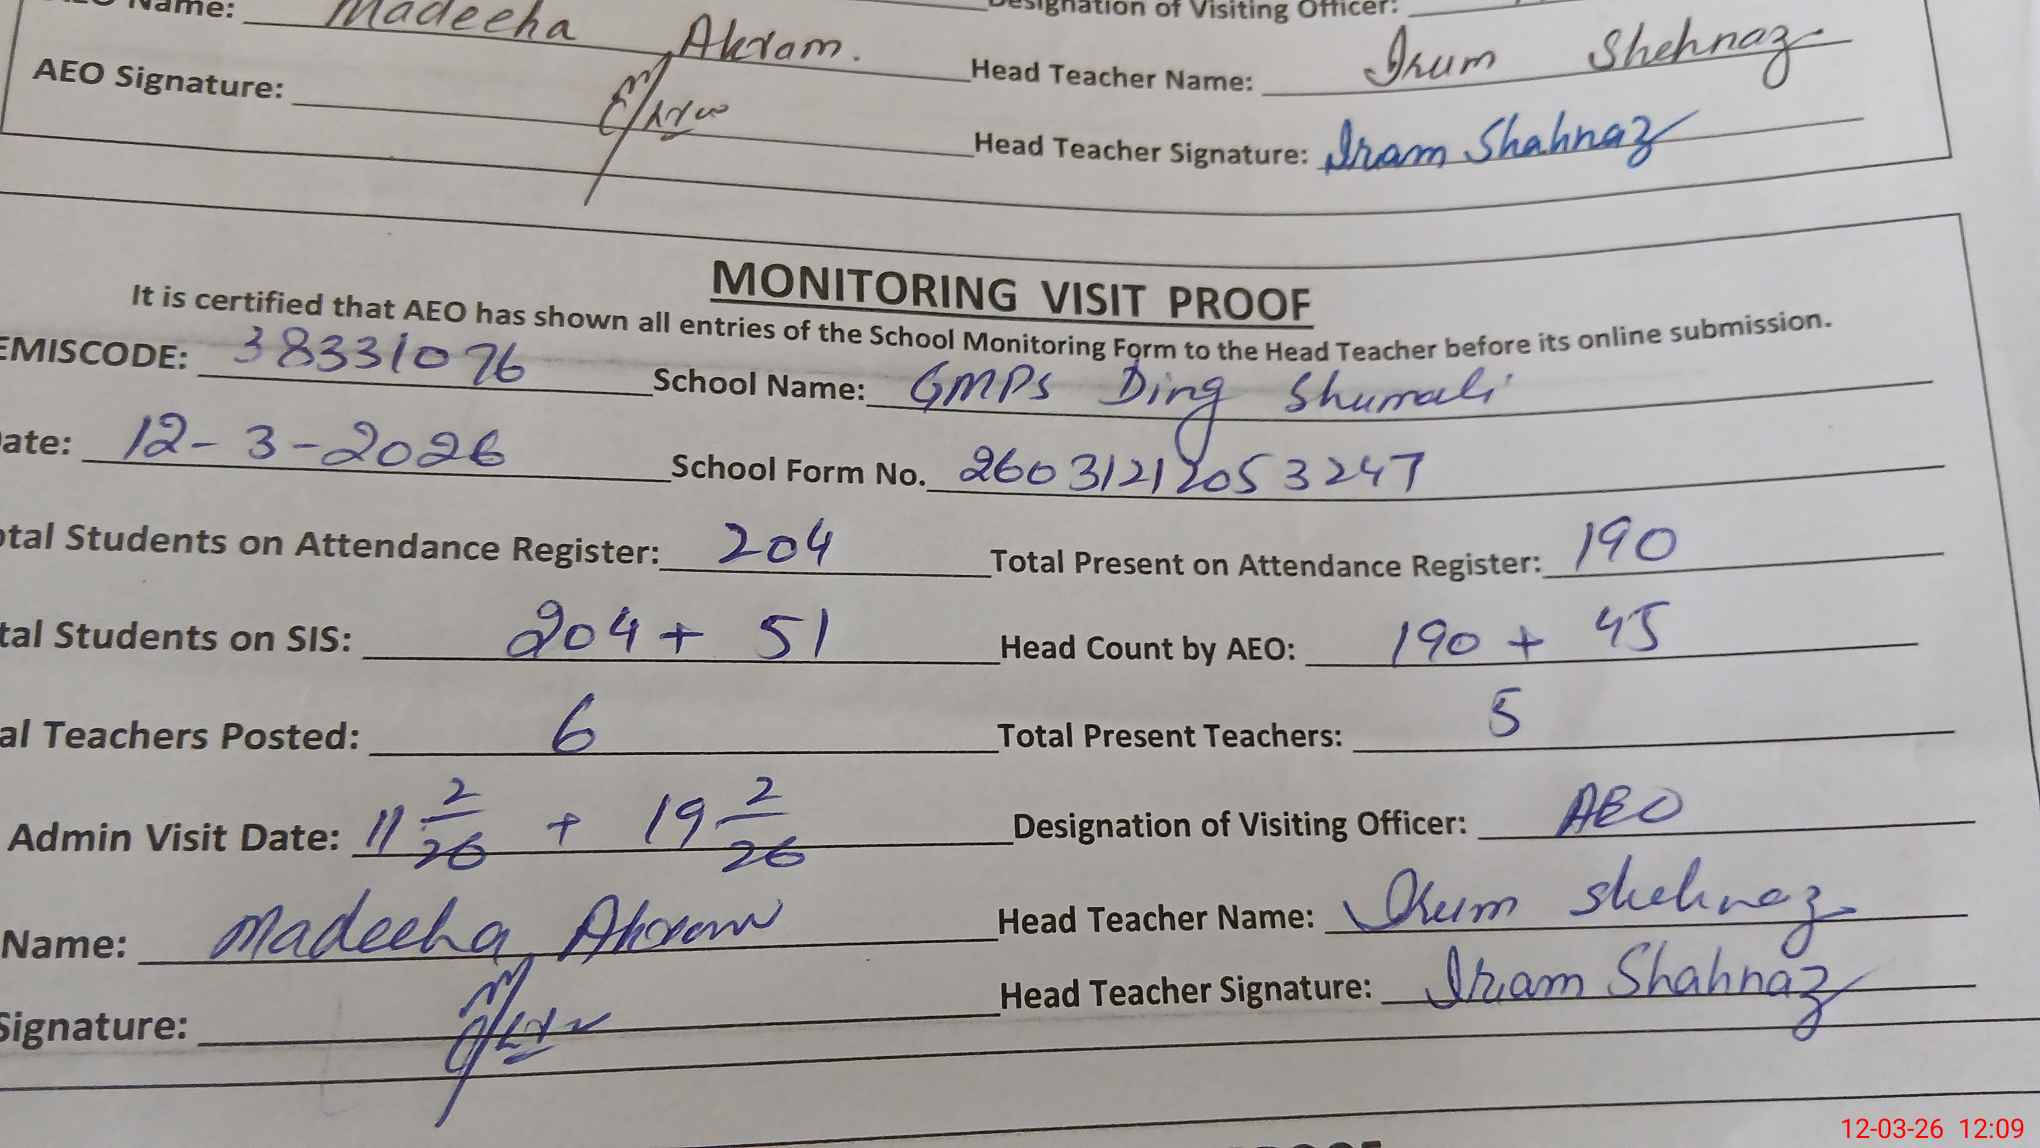 Name: Madeeha Akram.
Designation of Visiting Officer:
AEO Signature:
Head Teacher Name: Irum Shehnaz
Head Teacher Signature: Iram Shahnaz
MONITORING VISIT PROOF
It is certified that AEO has shown all entries of the School Monitoring Form to the Head Teacher before its online submission.
EMISCODE: 38331076 School Name: GMPS Ding Shumali
ate: 12-3-2026 School Form No. 26031212053247
otal Students on Attendance Register: 204 Total Present on Attendance Register: 190
tal Students on SIS: 204 + 51 Head Count by AEO: 190 + 45
al Teachers Posted: 6 Total Present Teachers: 5
Admin Visit Date: 11 2/26 + 19 2/26 Designation of Visiting Officer: AEO
Name: Madeeha Akram Head Teacher Name: Irum Shehnaz
Signature: Head Teacher Signature: Iram Shahnaz
12-03-26 12:09